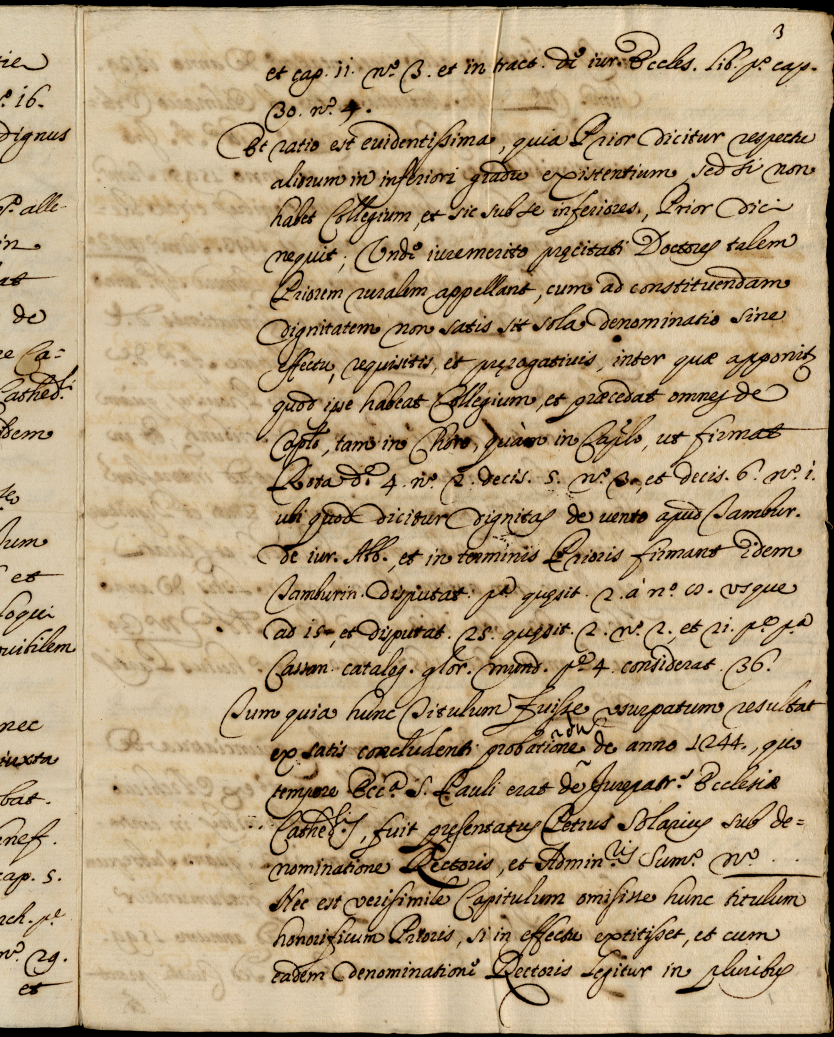 rie
n.º 16.
dignus
P. alle-
in
at
de
re Ca=
Cathed.
idem
lum
et
loqui
nec
iuxta
bat.
enef.
cap. 5.
rch. p.º
n.º 29.
et
3
et cap. 11. n.º 3. et in tract. de iur. Eccles. lib. p.º cap.
30. n.º 4.
Et ratio est evidentissima, quia Prior dicitur respectu
aliorum in inferiori gradu existentium, sed si non
habet Collegium, et sic sub se inferiores, Prior dici
nequit; Unde iuremerito pręcitati Doctores talem
Priorem ruralem appellant, cum ad constituendam
dignitatem non satis sit sola denominatio sine
effectu, requisitis, et pręrogativis, inter quæ apponit
quod ipse habeat Collegium, et præcedat omnes de
Cąplo, tam in Choro, quàm in Cąplo, ut firmat
Rota d.ª 4. n.º 2. decis. 5. n.º 3. et decis. 6. n.º 1.
ubi quod dicitur Dignitas de vento apud Tambur.
de iur. Abb., et in terminis Prioris firmant Idem
Tamburin. disputat. p.ª quęsit. 2. à n.º 10. usque
ad 15. et disputat. 25. quęsit. 2. n.º 2., et 21. p.º p.ª
Cassan. catalog. glor. mund. p.ª 4. considerat. 36.
Tum quia hunc Titulum fuisse usurpatum resultat
ex satis concludenti probatione de anno 1244., quo
tempore Ecc.ª S. Pauli erat de Iurepatr.º Ecclesiæ
Cathe.lis, fuit pręsentatus Petrus Solarius sub de=
nominatione Rectoris, et Admin.ris Sum.º n.º . . .
Nec est verisimile Capitulum omisisse hunc titulum
honorificum Prioris, si in effectu extitisset, et cum
eadem denominatione Rectoris legitur in pluribus